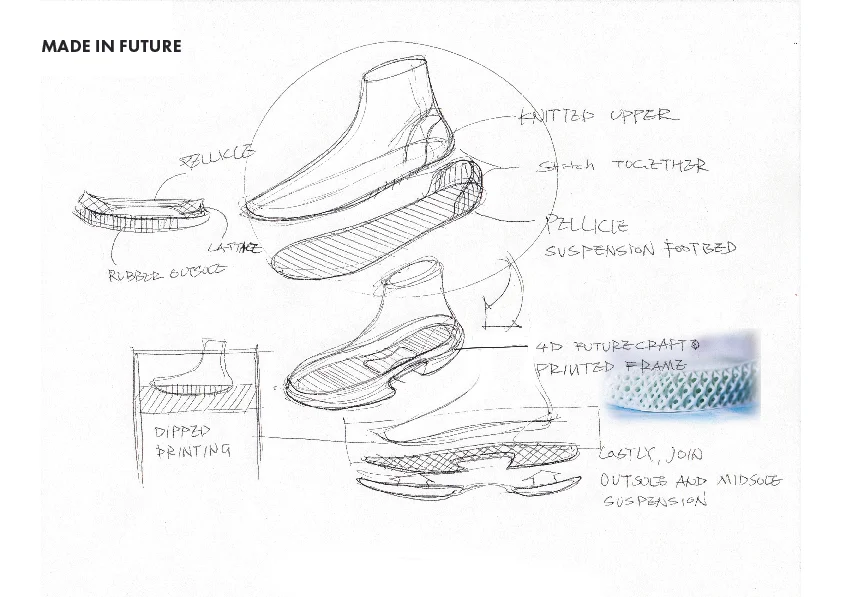 MADE IN FUTURE
KNITTED UPPER
PELLICLE
TOGETHER
PELLICLE
SUSPENSION FOOTBED
LATTICE
RUBBER OUTSOLE
4D FUTURECRAFT
PRINTED FRAME
DIPPED
PRINTING
LASTLY, JOIN
OUTSOLE AND MIDSOLE
SUSPENSION